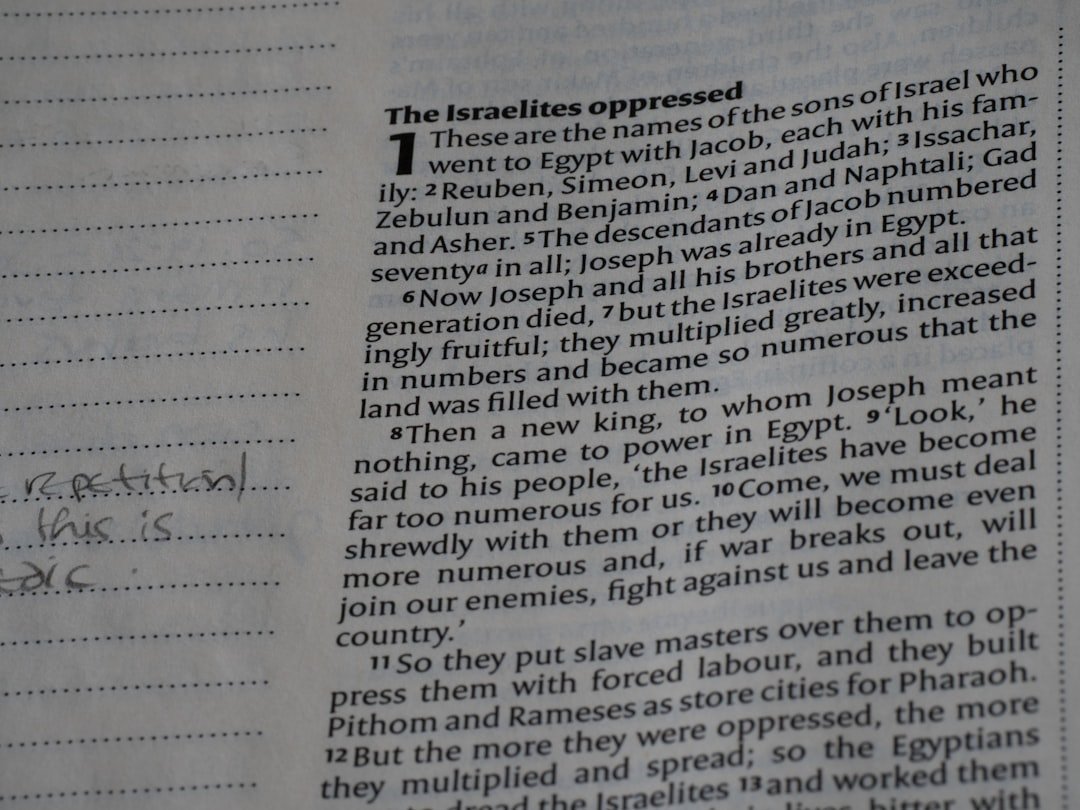 The Israelites oppressed
1 These are the names of the sons of Israel who
went to Egypt with Jacob, each with his fam-
ily: 2 Reuben, Simeon, Levi and Judah; 3 Issachar,
Zebulun and Benjamin; 4 Dan and Naphtali; Gad
and Asher. 5 The descendants of Jacob numbered
seventya in all; Joseph was already in Egypt.
6 Now Joseph and all his brothers and all that
generation died, 7 but the Israelites were exceed-
ingly fruitful; they multiplied greatly, increased
in numbers and became so numerous that the
land was filled with them.
8 Then a new king, to whom Joseph meant
nothing, came to power in Egypt. 9 ‘Look,’ he
said to his people, ‘the Israelites have become
far too numerous for us. 10 Come, we must deal
shrewdly with them or they will become even
more numerous and, if war breaks out, will
join our enemies, fight against us and leave the
country.’
11 So they put slave masters over them to op-
press them with forced labour, and they built
Pithom and Rameses as store cities for Pharaoh.
12 But the more they were oppressed, the more
they multiplied and spread; so the Egyptians
dread the Israelites 13 and worked them
bitter with
repetition/
this is